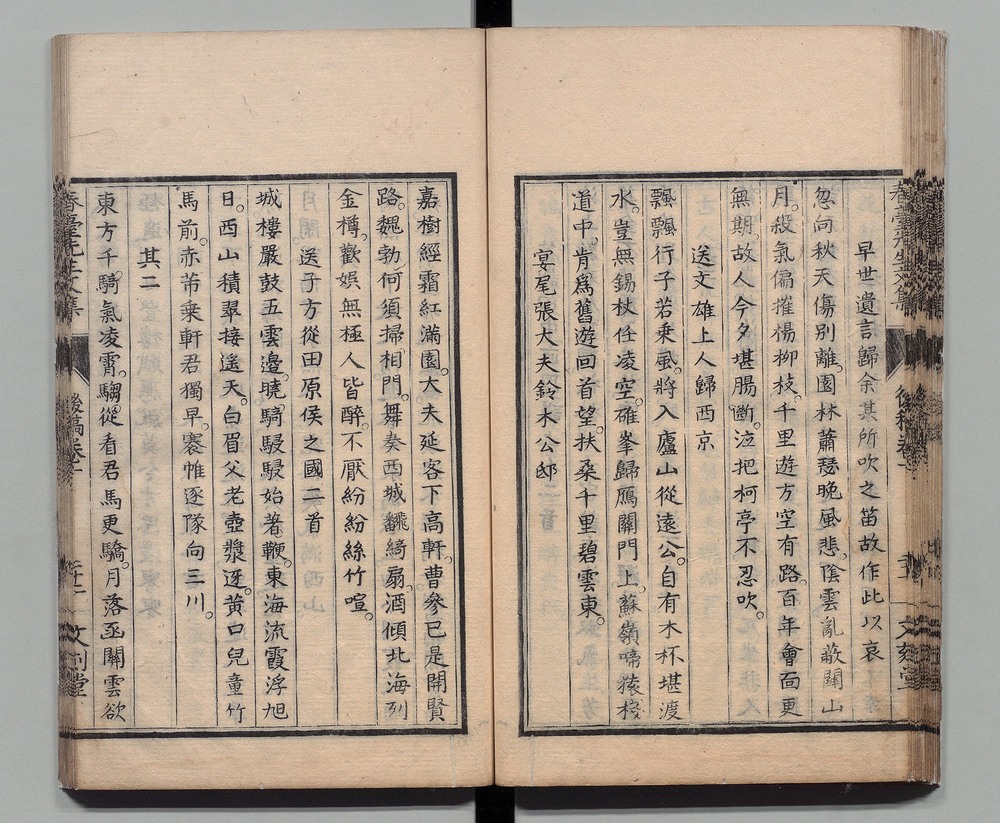 早世遺言歸余其所吹之笛故作此以哀
忽向秋天傷別離。園林蕭瑟晚風悲。陰雲亂蔽關山
月。殺氣偏摧楊柳枝。千里遊方空有路。百年會面更
無期。故人今夕堪腸斷。泣把柯亭不忍吹。
送文雄上人歸西京
飄飄行子若乘風。將入廬山從遠公。自有木杯堪渡
水。豈無錫杖任凌空。碓峯歸鴈關門上。蘇嶺啼猿棧
道中。肯爲舊遊回首望。扶桑千里碧雲東。
宴尾張大夫鈴木公邸
嘉樹經霜紅滿園。大夫延客下高軒。曹參已是開賢
路。魏勃何須掃相門。舞奏西城飜綺扇。酒傾北海列
金樽。歡娯無極人皆醉。不厭紛紛絲竹喧。
送子方從田原侯之國二首
城樓嚴鼓五雲邊。曉騎騤騤始著鞭。東海流霞浮旭
日。西山積翠接遙天。白眉父老壺漿迓。黃口兒童竹
馬前。赤芾乘軒君獨早。褰帷逐隊向三川。
其二
東方千騎氣凌霄。騶從看君馬更驕。月落函關雲欲
春臺先生文集
後稿卷一
文刻堂